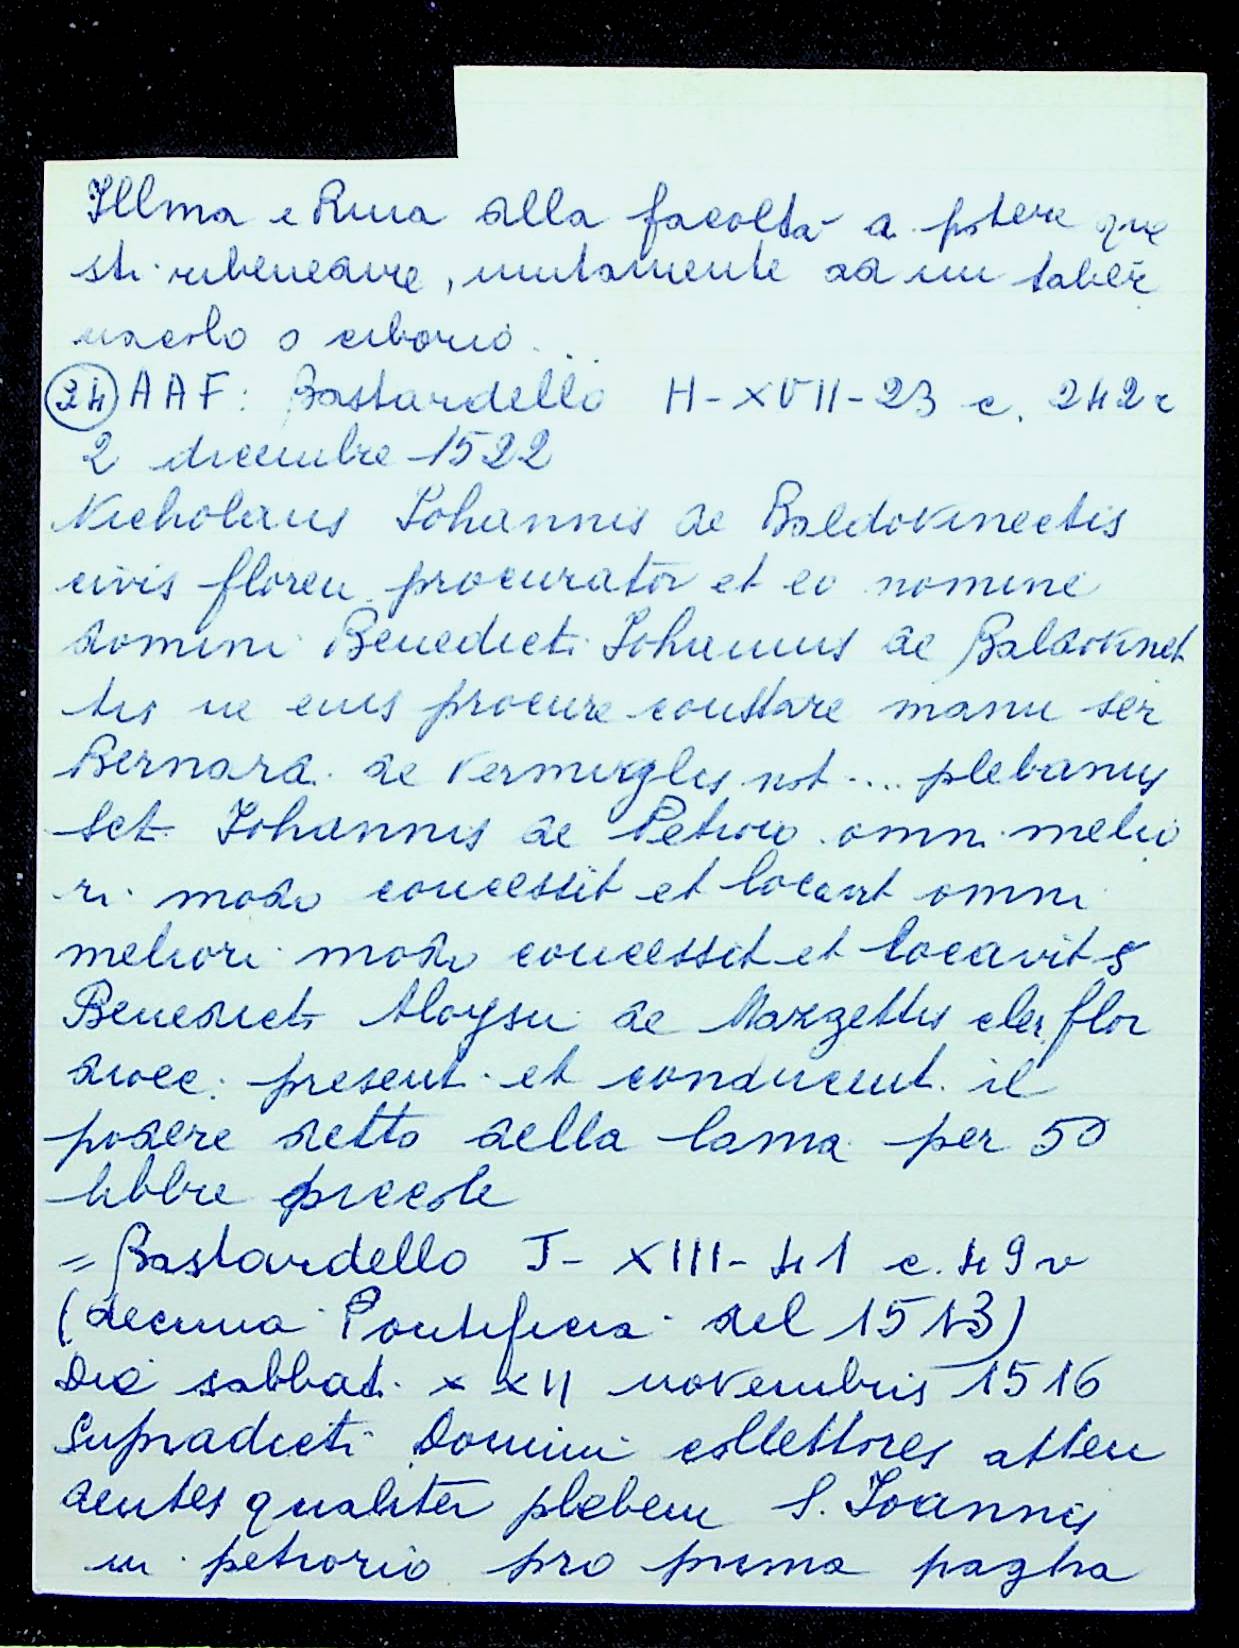 Illma e Rma alla facoltà a potere que
sti ribenedire, unitamente ad un taber
nacolo o ciborio...
24 AAF: Bastardello H-XVII-23 c. 242r
2 dicembre 1522
Nicholaus Johannis de Baldovinectis
civis floren procurator et eo nomine
domini Benedicti Johannis de Baldovinet
tis ne eius procure constare manu ser
Bernard. de Vermigles not... plebanus
Sct Johannis de Petroio omn. melio
ri modo concessit et locavit omni
meliori modo concessit et locavit s
Benedict Aloysii de Mazzettis cler. flor
dioec. present. et conducent. il
podere detto della lama per 50
libbre piccole
= Bastardello J-XIII-41 c. 49v
(decima Pontificia del 1513)
Die sabbat. XXII novembris 1516
Supradicti Domini collettores atten
dentes qualiter plebem S. Joannis
in petrorio pro prima pagha